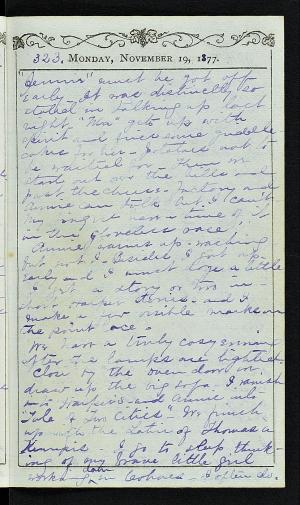 323. MONDAY, NOVEMBER 19, 1877.
"Dennis" must be got off
Early. It was distinctly so
stated in talking up last
night. "Ma" gets up with
spirit and fries some griddle
cakes for him. Potatoes not to
be waited for. Then we
start out over the hills and
past the cheese-factory and
Annie can talk but I can't
in the
Annie warms up washing
but not I. Besides, I got up
Early and I must lose a little
I get a story or two in
Harper and I
make a few visible marks on
the point lace.
We have a truly cosy evening
After the lamps are lighted,
Close by the oven-door we
draw up the big sofa. I ravish
Harpers and Annie
"Tale of Two Cities". We finish
up with the Latin of Thomas a
Kempis. I go to sleep think-
ing of my brave little girl
working down in Cohoes. I often do.